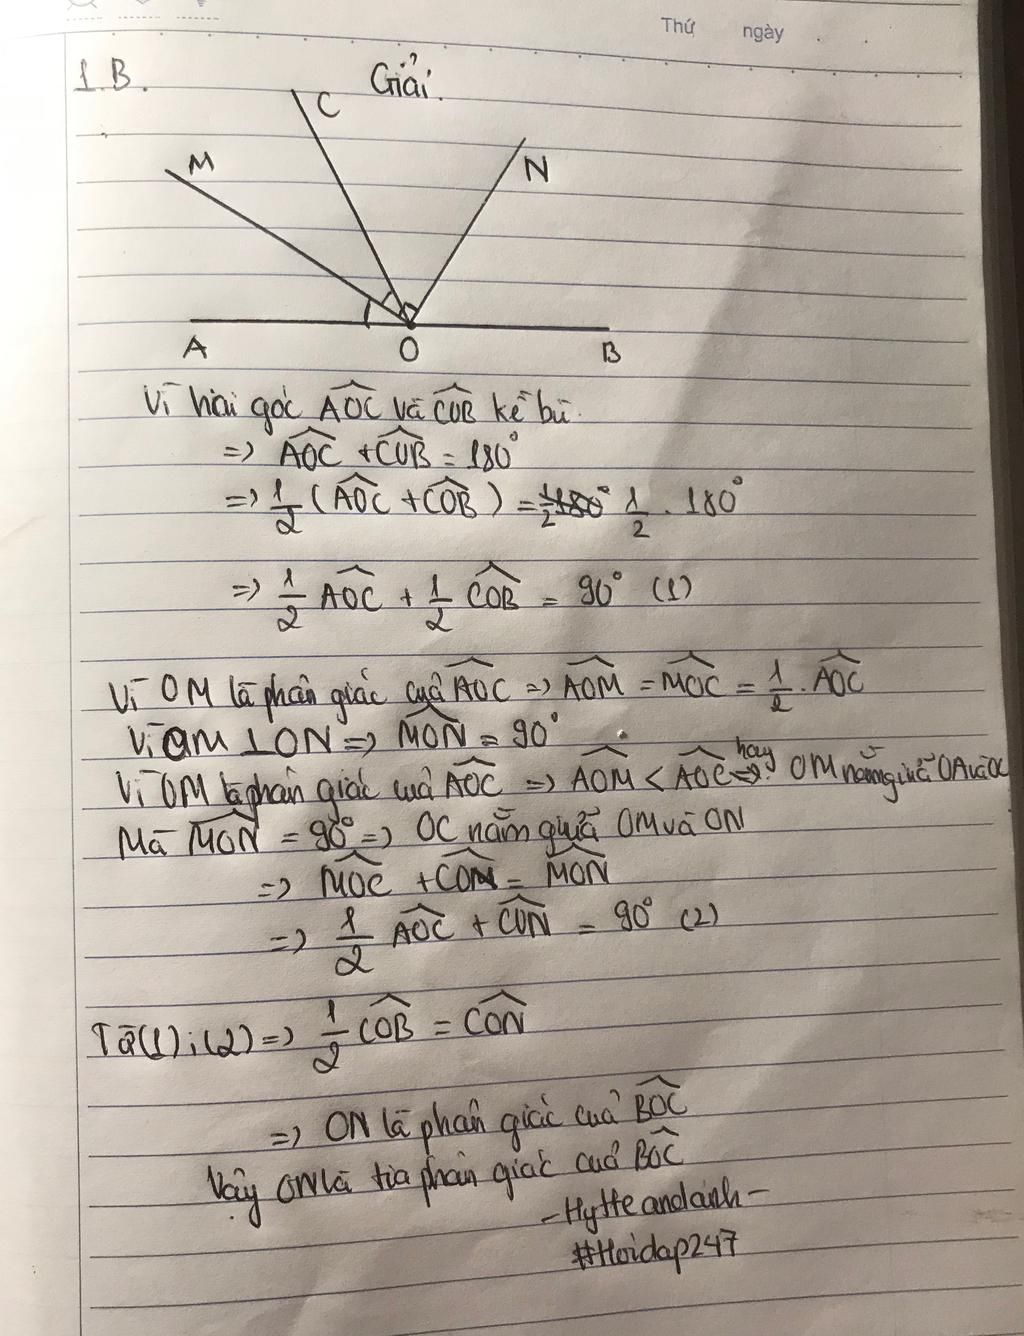 Thứ ngày
1.B. Giải.
C
M
N
A O B
Vì hai góc AOC và COB kề bù.
=> AOC + COB = 180°
=> 1/2 (AOC + COB) = 1/2 180° 1/2 . 180°
=> 1/2 AOC + 1/2 COB = 90° (1)
Vì OM là phân giác cuả AOC => AOM = MOC = 1/2 . AOC
Vì OM ⊥ ON => MON = 90°
Vì OM là phân giác cuả AOC => AOM < AOC hay OM nằm giữa OA và OC
Mà MON = 90° => OC nằm giữa OM và ON
=> MOC + CON = MON
=> 1/2 AOC + CON = 90° (2)
Từ (1) ; (2) => 1/2 COB = CON
=> ON là phân giác cuả BOC
Vậy ON là tia phân giác cuả BOC
- Hytteandanh -
#Hoidap247